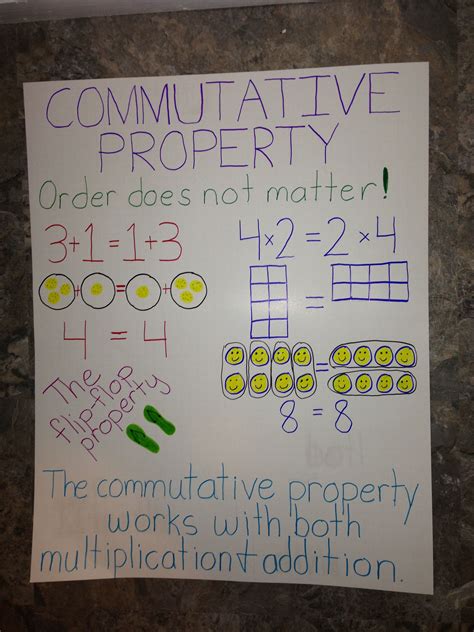 COMMUTATIVE
PROPERTY
Order does not matter!
3+1=1+3
4×2=2×4
+ = +
=
4 = 4
=
8 = 8
The
flip-flop
property
The commutative property
works with both
multiplication + addition.